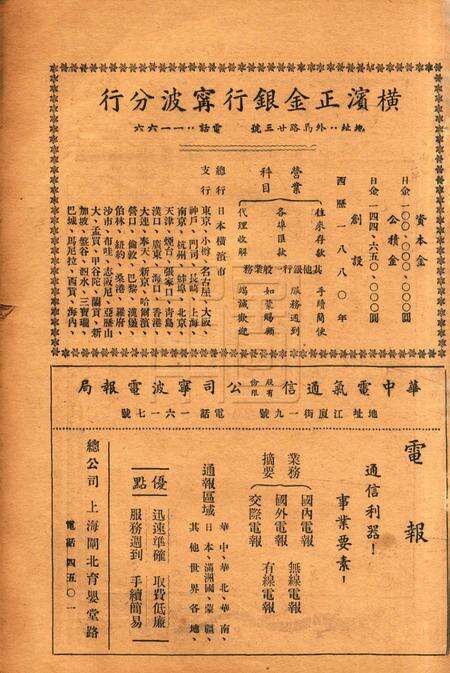 橫濱正金銀行甯波分行
地址‥外馬路廿三號 電話‥一一六六
資本金
日金一〇〇、〇〇〇、〇〇〇圓
公積金
日金一四四、六五〇、〇〇〇圓
創設
西歷一八八〇年
營業科目
往來存款
各埠匯款
代理收解
其他銀行一般業務
手續簡便
服務週到
如蒙賜顧
竭誠歡迎
總行 日本橫濱市
支行 東京、小樽、名古屋、大阪、
神戶、門司、長崎、上海、
南京、杭州、蘇州、北京、
天津、煙台、張家口、青島、
漢口、廣東、海口、香港、
大連、奉天、新京、哈爾濱、
營口、倫敦、巴黎、漢堡、
伯林、紐約、桑港、羅府、
沙市、布哇、志陂尼、亞歷山
大、孟買、甲谷陀、蘭貢、新
加坡、盤谷、泗水、三寶瓏、
巴城、馬尼拉、西貢、海內、
華中電氣通信股份有限公司甯波電報局
地址江廈街一九號 電話一六一七號
電報
通信利器！
事業要素！
業務摘要
國內電報 無線電報
國外電報 有線電報
交際電報
通報區域
華中、華北、華南、
日本、滿洲國、蒙疆、
其他世界各地、
優點
迅速準確 取費低廉
服務週到 手續簡易
總公司 上海閘北育嬰堂路
電話 四五〇一